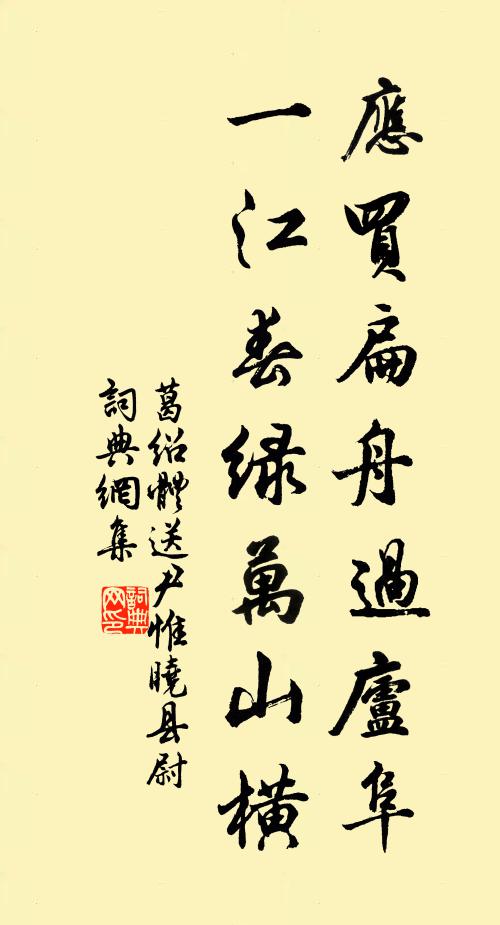 應買扁舟過廬阜
一江春綠萬山橫
葛紹體送尹惟曉县尉
詞典網集
詞典网印